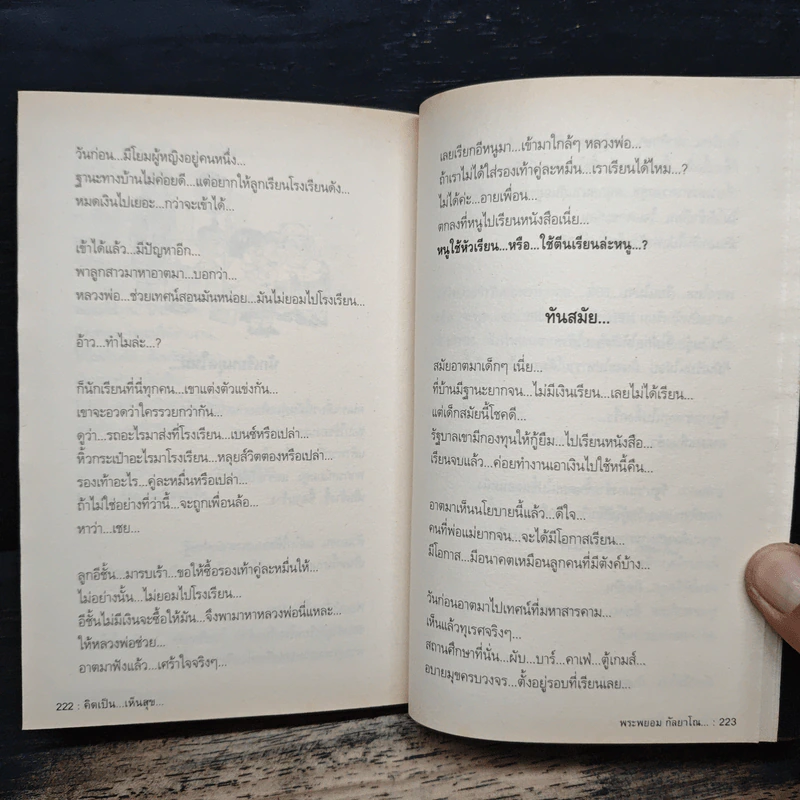 วันก่อน...มีโยมผู้หญิงอยู่คนหนึ่ง...
ฐานะทางบ้านไม่ค่อยดี...แต่อยากให้ลูกเรียนโรงเรียนดัง...
หมดเงินไปเยอะ...กว่าจะเข้าได้...
เข้าได้แล้ว...มีปัญหาอีก...
พาลูกสาวมาหาอาตมา...บอกว่า...
หลวงพ่อ...ช่วยเทศน์สอนมันหน่อย...มันไม่ยอมไปโรงเรียน...
อ้าว...ทำไมล่ะ...?
ก็นักเรียนที่นี่ทุกคน...เขาแต่งตัวแข่งกัน...
เขาจะอวดว่าใครรวยกว่ากัน...
ดูว่า...รถอะไรมาส่งที่โรงเรียน...เบนซ์หรือเปล่า...
หิ้วกระเป๋าอะไรมาโรงเรียน...หลุยส์วิตตองหรือเปล่า...
รองเท้าอะไร...คู่ละหมื่นหรือเปล่า...
ถ้าไม่ใช่อย่างที่ว่านี้...จะถูกเพื่อนล้อ...
หาว่า...เชย...
ลูกอีชั้น...มารบเร้า...ขอให้ซื้อรองเท้าคู่ละหมื่นให้...
ไม่อย่างนั้น...ไม่ยอมไปโรงเรียน...
อีชั้นไม่มีเงินจะซื้อให้มัน...จึงพามาหาหลวงพ่อนี่แหละ...
ให้หลวงพ่อช่วย...
อาตมาฟังแล้ว...เศร้าใจจริงๆ...
222 : คิดเป็น...เห็นสุข...
เลยเรียกอีหนูมา...เข้ามาใกล้ๆ หลวงพ่อ...
ถ้าเราไม่ได้ใส่รองเท้าคู่ละหมื่น...เราเรียนได้ไหม...?
ไม่ได้ค่ะ...อายเพื่อน...
ตกลงที่หนูไปเรียนหนังสือเนี่ย...
หนูใช้หัวเรียน...หรือ...ใช้ตีนเรียนล่ะหนู...?
ทันสมัย...
สมัยอาตมาเด็กๆ เนี่ย...
ที่บ้านมีฐานะยากจน...ไม่มีเงินเรียน...เลยไม่ได้เรียน...
แต่เด็กสมัยนี้โชคดี...
รัฐบาลเขามีกองทุนให้กู้ยืม...ไปเรียนหนังสือ...
เรียนจบแล้ว...ค่อยทำงานเอาเงินไปใช้หนี้คืน...
อาตมาเห็นนโยบายนี้แล้ว...ดีใจ...
คนที่พ่อแม่ยากจน...จะได้มีโอกาสเรียน...
มีโอกาส...มีอนาคตเหมือนลูกคนที่มีตังค์บ้าง...
วันก่อนอาตมาไปเทศน์ที่มหาสารคาม...
เห็นแล้วทุเรศจริงๆ...
สถานศึกษาที่นั่น...ผับ...บาร์...คาเฟ่...ตู้เกมส์...
อบายมุขครบวงจร...ตั้งอยู่รอบที่เรียนเลย...
พระพยอม กัลยาโณ... : 223